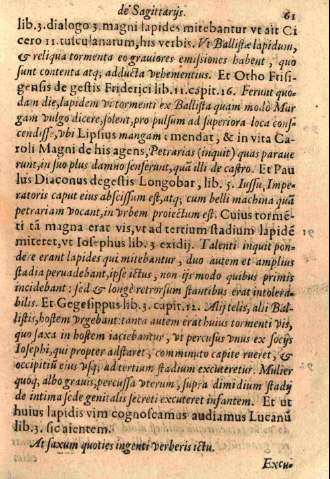 de Sagittarijs. 61
lib.3. dialogo 3. magni lapides mitebantur vt ait Ci
cero 11. tusculanarum, his verbis. Vt Ballistæ lapidum,
& reliqua tormenta eo grauiores emisiones habent, quo
sunt contenta atq; adducta vehementius. Et Otho Frisi-
gensis de gestis Friderici lib. 11. capit. 16. Ferunt quo-
dam die, lapidem vi tormenti ex Ballista quam modò Mar
gam vulgo dicere, solent, pro pulsum ad superiora loca cons-
cendisse, vbi Lipsius mangam emendat, & in vita Ca-
roli Magni de his agens, Petrarias (inquit) quas paraue
runt, in suo plus damno senserunt, quã illi de castro. Et Pau
lus Diaconus de gestis Longobar, lib. 5. Iussu, Impe-
ratoris caput eius abscissum est, atq; cum belli machina quã
petrariam vocant, in vrbem proiectum est. Cuius tormẽ-
ti tã magna erat vis, vt ad tertium stadium lapidẽ
miteret, vt Iosephus lib. 3 exidij. Talenti inquit pon-
dere erant lapides qui mitebantur, duo autem et amplius
stadia peruadebant, ipse ictus, non ijs modo quibus primis
incidebant: sed & longè retrorsum stantibus erat intolera-
bilis. Et Gegesippus lib. 3. capit. 12. Alij telis, alij Bal-
listis, hostem vrgebant: tanta autem erat huius tormenti vis,
quo saxa in hostem iaciebantur, vt percusus vnus ex socijs
Iosephi, qui propter adstaret, comminuto capite rueret, &
occipitiũ eius vsq; ad tertium stadium excuteretur. Mulier
quoq, albo grauis, percussa vterum, supra dimidium stadij
de intima sede genitalis secreti excuteret infantem. Et ut
huius lapidis vim cognoscamus audiamus Lucanũ
lib. 3. sic aientem.
At saxum quoties ingenti verberis ictu.
Excu-